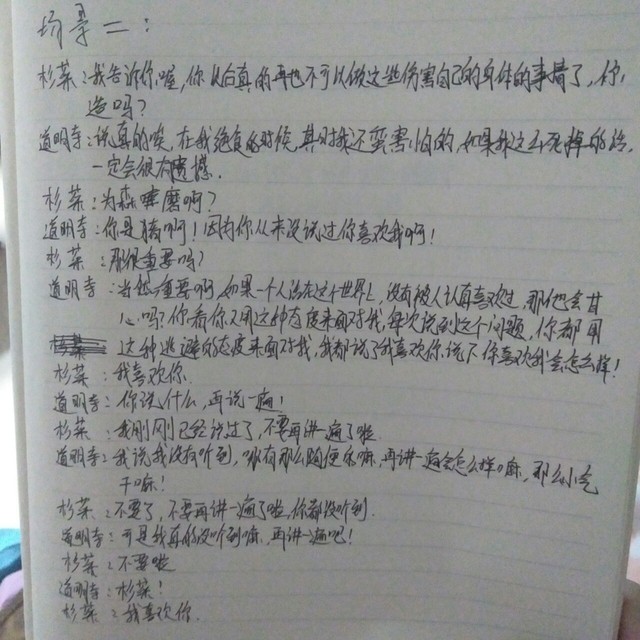 场景二：
杉菜：我告诉你喔，你以后真的再也不可以做这些伤害自己的身体的事情了，你知
道吗？
道明寺：说真的唉，在我绝食的时候，其时我还蛮害怕的，如果我这么死掉的话，
一定会很有遗憾.
杉菜：为森唛麽啊？
道明寺：你是猪啊！因为你从来没说过你喜欢我啊！
杉菜：那很重要吗？
道明寺：当然重要啊，如果一个人活在这个世界上，没有被人认真喜欢过，那他会甘
心吗？你看你又用这种态度来面对我，每次说到这个问题，你都用
这种逃避的态度来面对我，我都说了我喜欢你，说下你喜欢我会怎么样！
杉菜：我喜欢你.
道明寺：你说什么，再说一遍！
杉菜：我刚刚已经说过了，不要再讲一遍了啦
道明寺：我说我没有听到，哪有那么随便乐嘛，再讲一遍会怎么样嘛，那么小气
干嘛！
杉菜：不要了，不要再讲一遍了啦，你都没听到.
道明寺：可是我真的没听到嘛，再讲一遍吧！
杉菜：不要啦
道明寺：杉菜！
杉菜：我喜欢你.